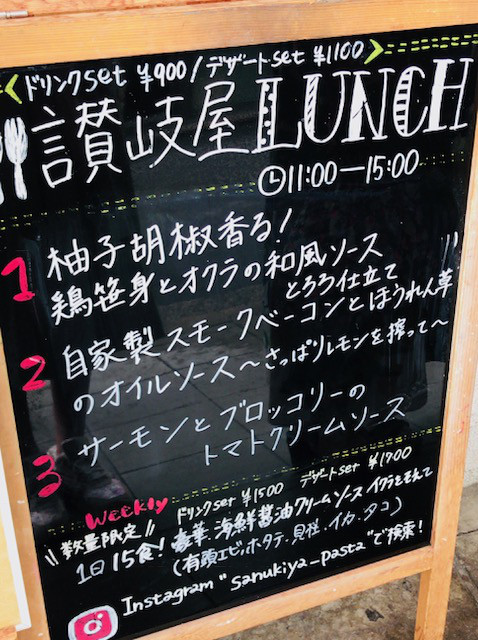 ドリンクset ¥900 / デザートset ¥1100
讃岐屋LUNCH
11:00―15:00
1 柚子胡椒香る!
鶏笹身とオクラの和風ソース
とろろ仕立て
2 自家製スモークベーコンとほうれん草
のオイルソース~さっぱりレモンを搾って~
3 サーモンとブロッコリーの
トマトクリームソース
Weekly ドリンクset ¥1500 デザートset ¥1700
\\数量限定//
1日15食! 豪華 海鮮醤油クリームソース イクラをそえて
(有頭エビ、ホタテ、貝柱、イカ、タコ)
Instagram "sanukiya_pasta"で検索!